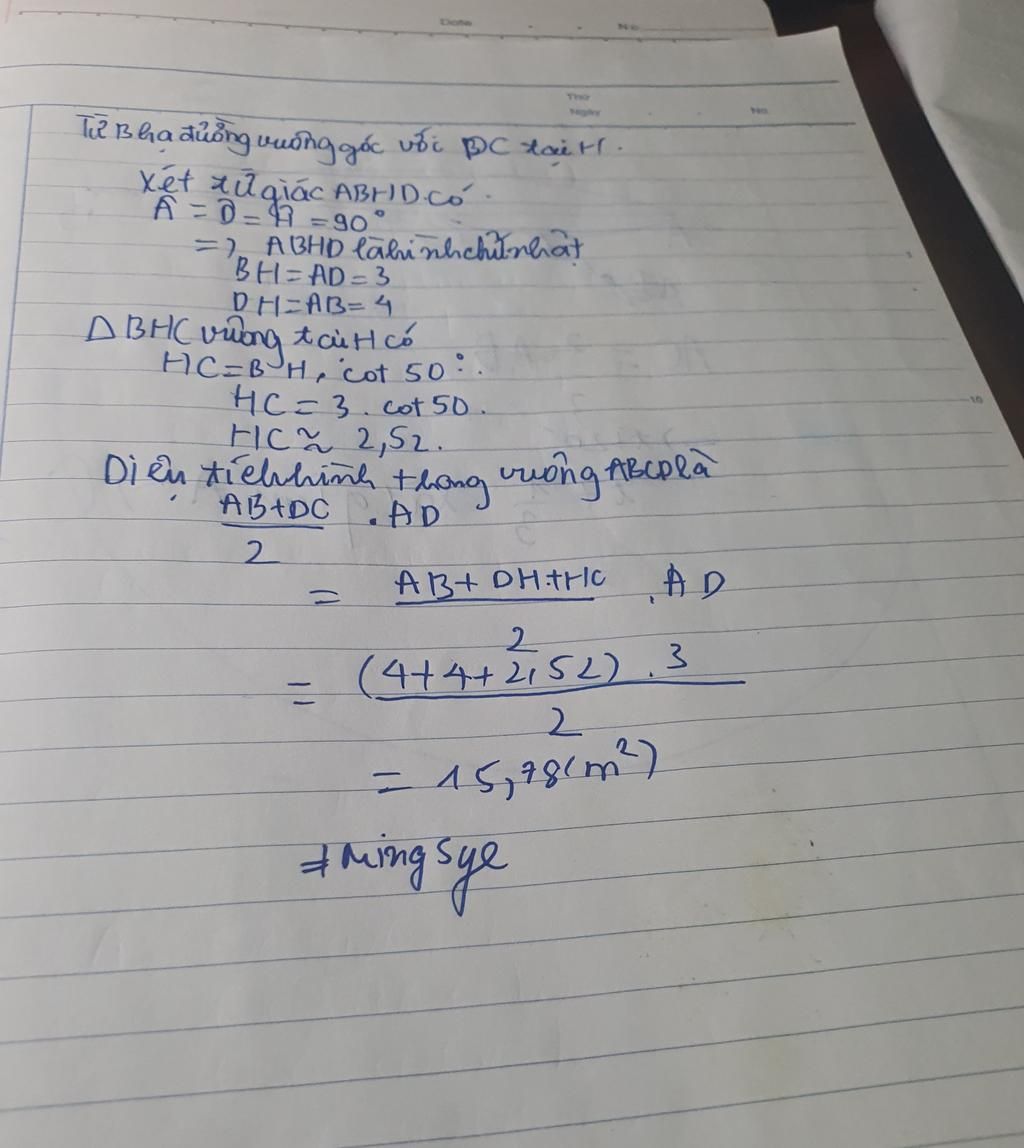 Date No
Thứ
Ngày No.
Từ B hạ đường vuông góc với DC tại H.
Xét tứ giác ABHD có.
Â = D̂ = Ĥ = 90°
=> ABHD là hình chữ nhật
BH = AD = 3
DH = AB = 4
Δ BHC vuông tại H có
HC = BH . cot 50°.
HC = 3 . cot 50.
HC ≈ 2,52.
10
Diện tích hình thang vuông ABCD là
AB+DC . AD
2
= AB + DH + HC . AD
2
= (4+4+2,52) . 3
2
= 15,78 (m²)